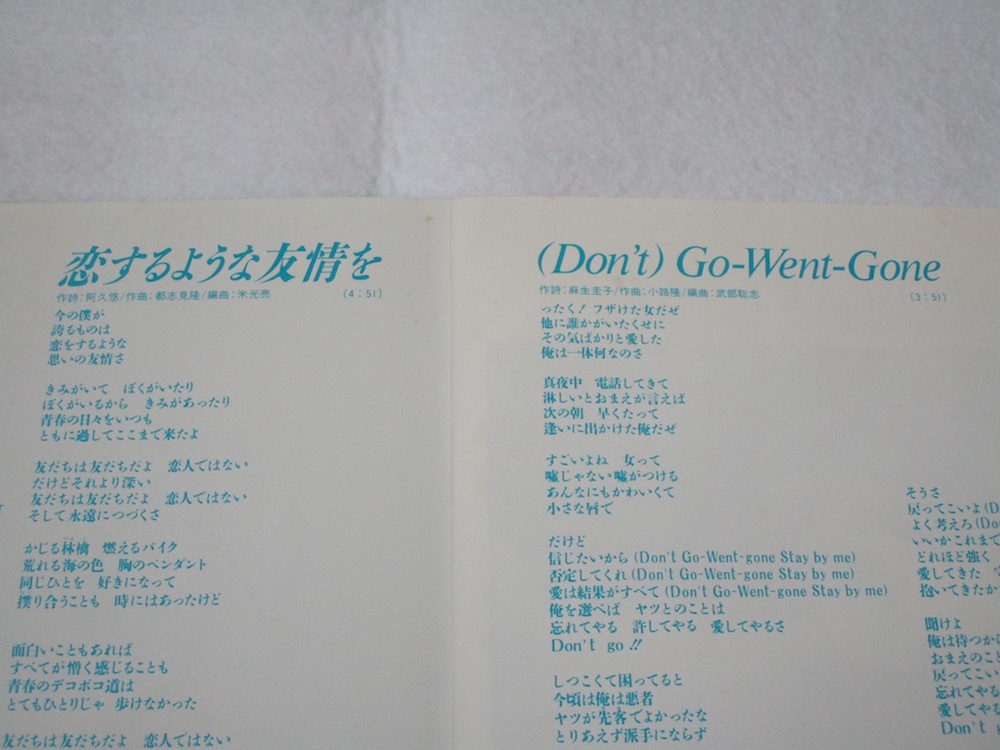 恋するような友情を
作詩:阿久悠/作曲:都志見隆/編曲:米光亮 (4:51)
今の僕が
誇るものは
恋をするような
思いの友情さ
きみがいて ぼくがいたり
ぼくがいるから きみがあったり
青春の日々をいつも
ともに過してここまで来たよ
友だちは友だちだよ 恋人ではない
だけどそれより深い
友だちは友だちだよ 恋人ではない
そして永遠につづくさ
かじる林檎 燃えるバイク
荒れる海の色 胸のペンダント
同じひとを 好きになって
撲り合うことも 時にはあったけど
面白いこともあれば
すべてが憎く感じることも
青春のデコボコ道は
とてもひとりじゃ 歩けなかった
友だちは友だちだよ 恋人ではない
(Don't) Go-Went-Gone
作詩:麻生圭子/作曲:小路隆/編曲:武部聡志 (3:51)
ったく! フザけた女だぜ
他に誰かがいたくせに
その気ばかりと愛した
俺は一体何なのさ
真夜中 電話してきて
淋しいとおまえが言えば
次の朝 早くたって
逢いに出かけた俺だぜ
すごいよね 女って
嘘じゃない嘘がつける
あんなにもかわいくて
小さな唇で
だけど
信じたいから (Don't Go-Went-gone Stay by me)
否定してくれ (Don't Go-Went-gone Stay by me)
愛は結果がすべて (Don't Go-Went-gone Stay by me)
俺を選べば ヤツとのことは
忘れてやる 許してやる 愛してやるさ
Don't go !!
しつこくて困ってると
今頃は俺は悪者
ヤツが先客でよかったな
とりあえず派手にならず
そうさ
戻ってこいよ (D
よく考えろ (Do
いいかこれまで
どれほど強く
愛してきた
抱いてきたか
聞けよ
俺は待つから
おまえのこと
戻ってこい
忘れてや
愛してや
Don't g